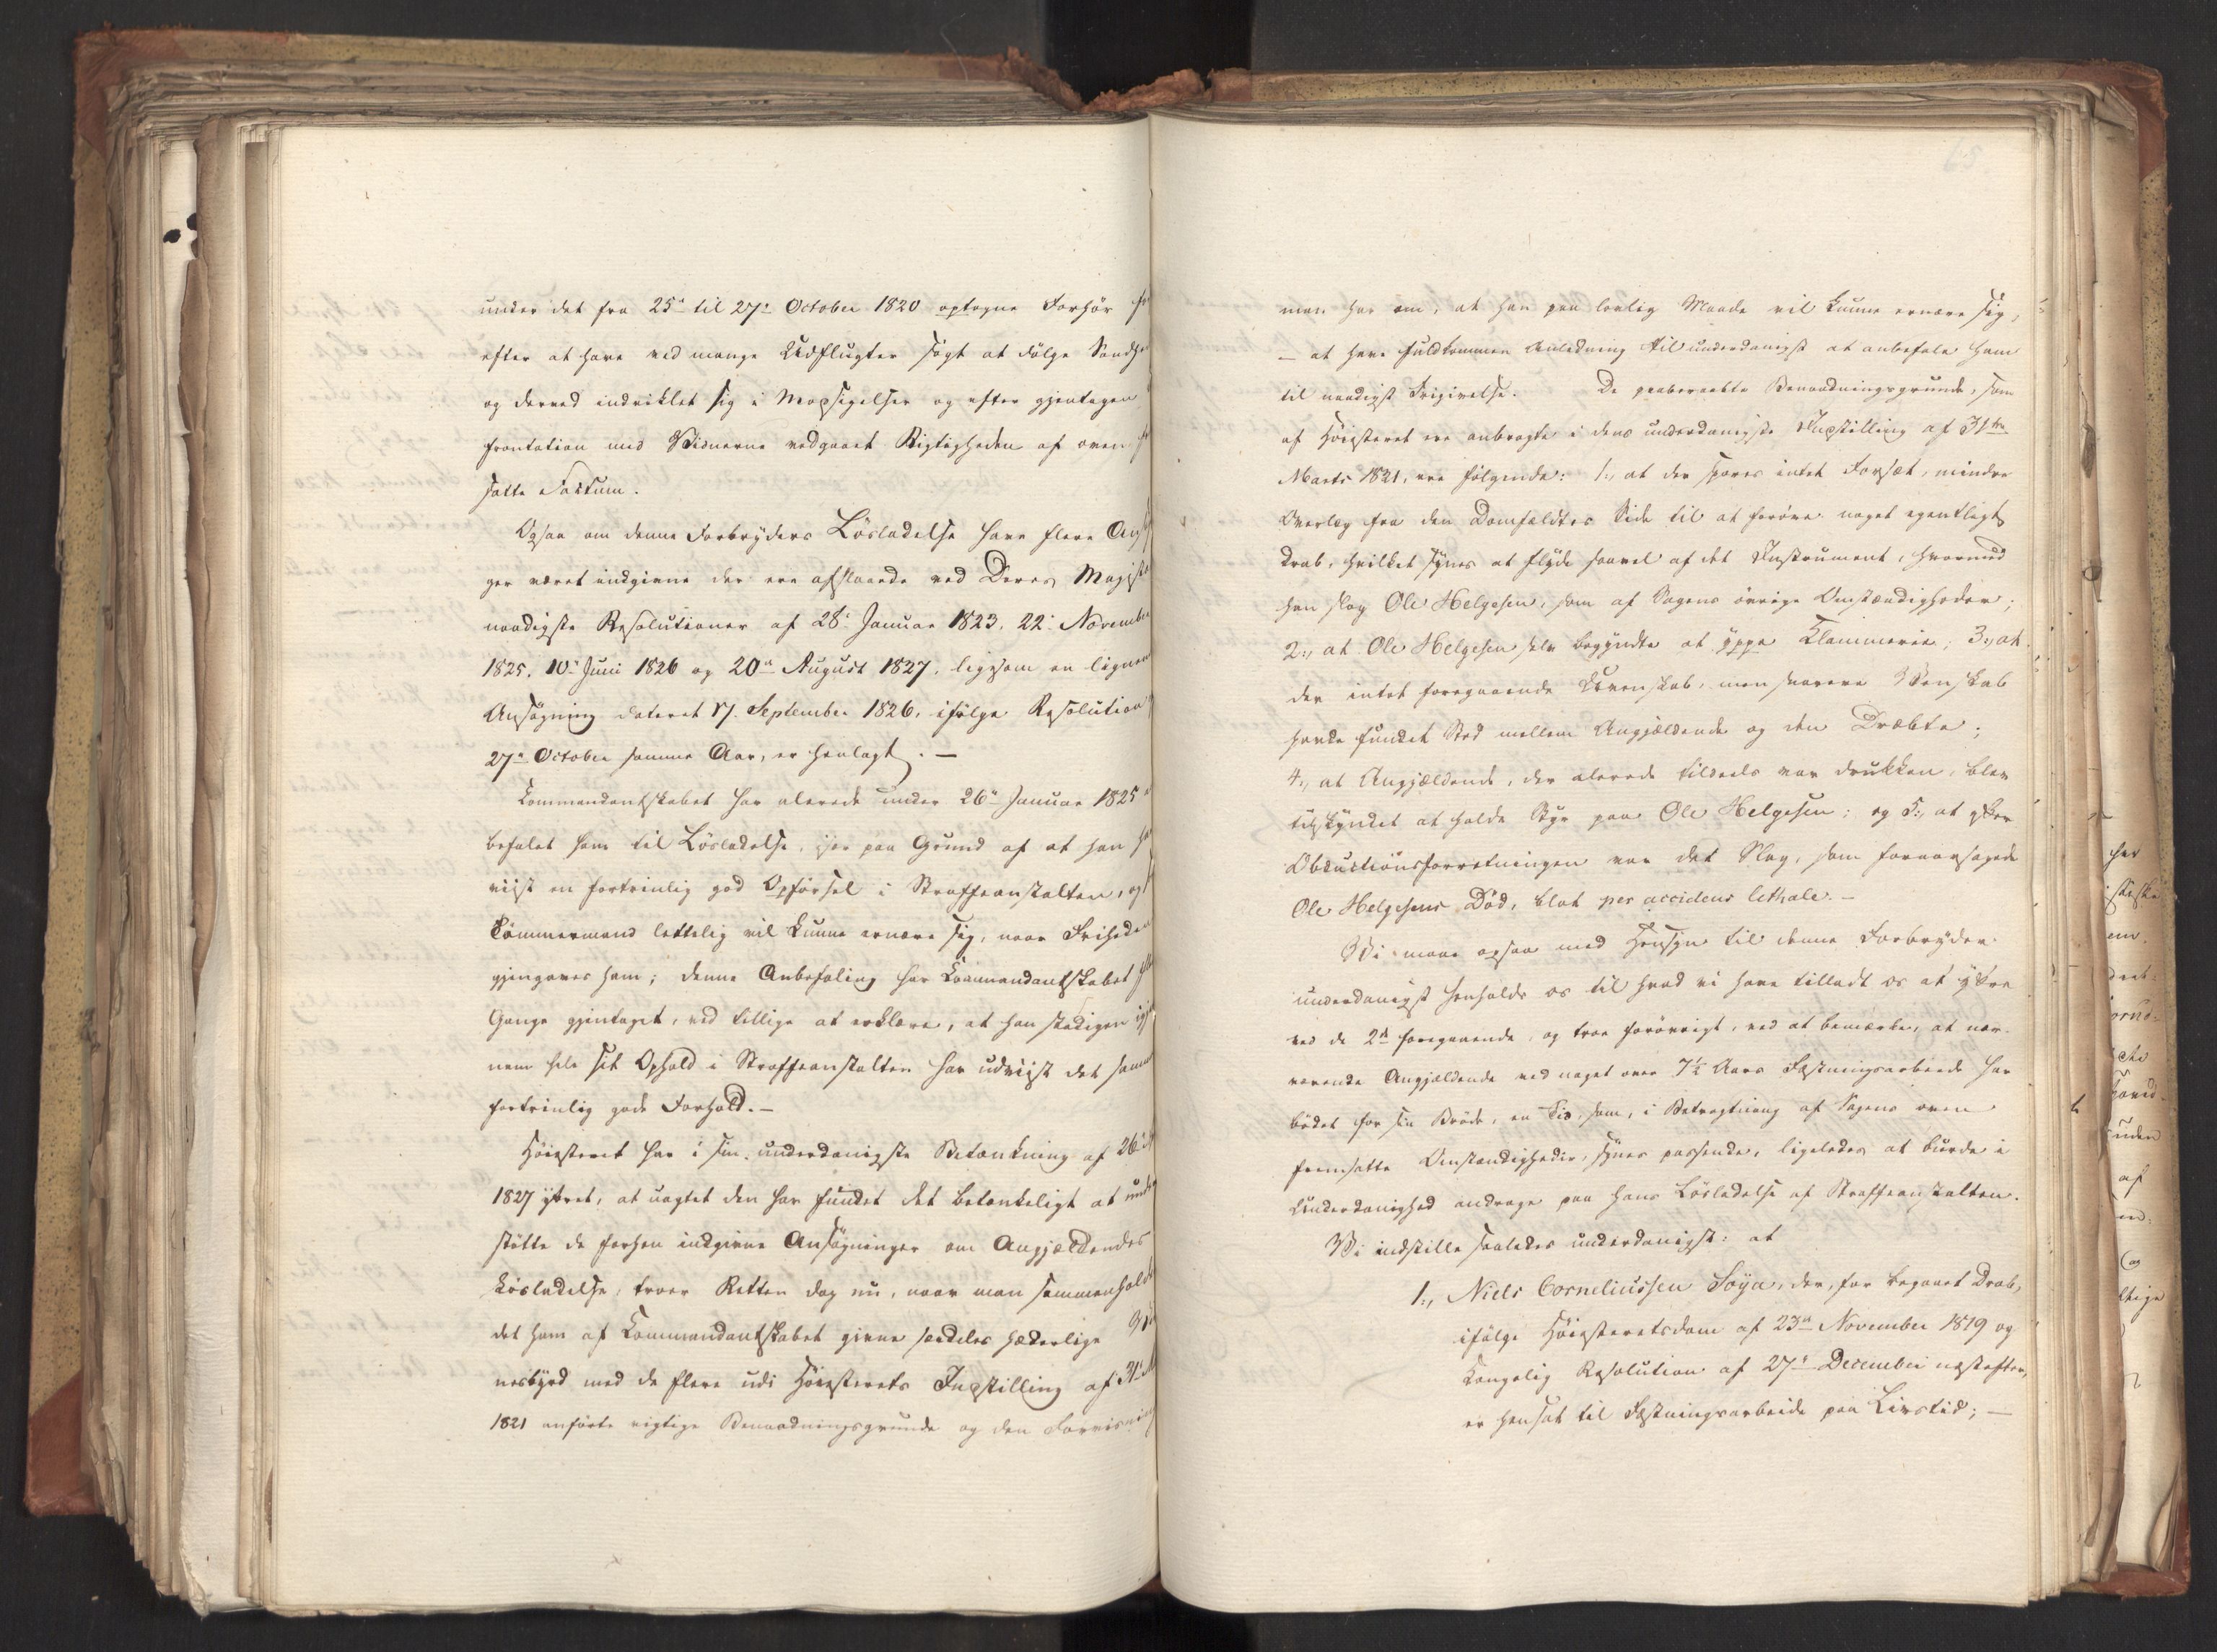 under det fra 25de til 27de October 1820 optagne Forhör
efter at have ved mange Udflugter søgt at dölge Sandhe
og derved indviklet sig i Modsigelser og efter gjentagen
frontation med Vidnerne vedgaaet Rigtigheden af oven
satte Factum.
Ogsaa om denne Forbryders Lösladelse have flere Ansö
ger været indgivne der ere afslaaede ved Deres Majest
naadigste Resolutioner af 28de Januar 1823, 22de November
1825, 10de Juni 1826 og 20de August 1827, ligesom en lignen
Ansögning dateret 17. September 1826, ifölge Resolution
27de October samme Aar, er henlagt. —
Commandantskabet har allerede under 26de Januar 1825
befalet ham til Lösladelse, især paa Grund af at han
viist en fortrinlig god Opförsel i Straffeanstalten, og
Tömmermand lettelig vil kunne ernære sig, naar Friheden
gjengaves ham; denne Anbefaling har Commandantskabet
Gange gjentaget, ved tillige at erklære, at han stedigen
nem hele sit Ophold i Straffeanstalten har udviist det samme
fortrinlig gode Forhold. —
Höiesteret har i sin underdanigste Betænkning af 26de
1827 yttret, at uagtet den har fundet det betænkeligt at under
stötte de forhen indgivne Ansögninger om Angjældendes
Lösladelse, troer Retten dog nu, naar man sammenholder
det ham af Commandantskabet givne særdeles hæderlige
nesbyrd med de flere udi Höiesterets Indstilling af 31te
1821 anförte vigtige Benaadningsgrunde og den Forvisning
65
man har om, at han paa lovlig Maade vil kunne ernære sig,
— at have fuldkommen Anledning til underdanigst at anbefale ham
til naadigst Frigivelse. De paaberaabte Benaadningsgrunde, som
af Höiesteret ere anbragte i dens underdanigste Indstilling af 31te
Marts 1821, ere fölgende: 1., at der spores intet Forsæt, mindre
Overlæg fra den Domfældtes Side til at foröve noget egentligt
Drab, hvilket synes at flyde saavel af det Instrument, hvormed
han slog Ole Helgesen, som af Sagens övrige Omstændigheder;
2., at Ole Helgesen selv begyndte at yppe Klammerie; 3., at
der intet foregaaende Uvenskab, men snarere Venskab
havde fundet Sted mellem Angjældende og den Dræbte;
4., at Angjældende, der allerede tildeels var drukken, blev
tilskyndet at holde Styr paa Ole Helgesen; og 5., at efter
Obductionsforretningen var det Slag, som foraarsagede
Ole Helgesens Död, blot per accidens lethale. —
Vi maae ogsaa med Hensyn til denne Forbryder
underdanigst henholde os til hvad vi have tilladt os at yttre
ved de 2de foregaaende, og troe forövrigt, ved at bemærke, at nær-
værende Angjældende ved noget over 7½ Aars Fæstningsarbeide har
bödet for sin Bröde, en Tid, som, i Betragtning af Sagens oven
fremsatte Omstændigheder, synes passende, ligeledes at burde i
Underdanighed andrage paa hans Lösladelse af Straffeanstalten.
Vi indstille saaledes underdanigst: at
1., Niels Corneliussen Soya, der, for begaaet Drab,
ifölge Höiesteretsdom af 23de November 1819 og
Kongelig Resolution af 27de December næstefter,
er hensat til Fæstningsarbeide paa Livstid; —